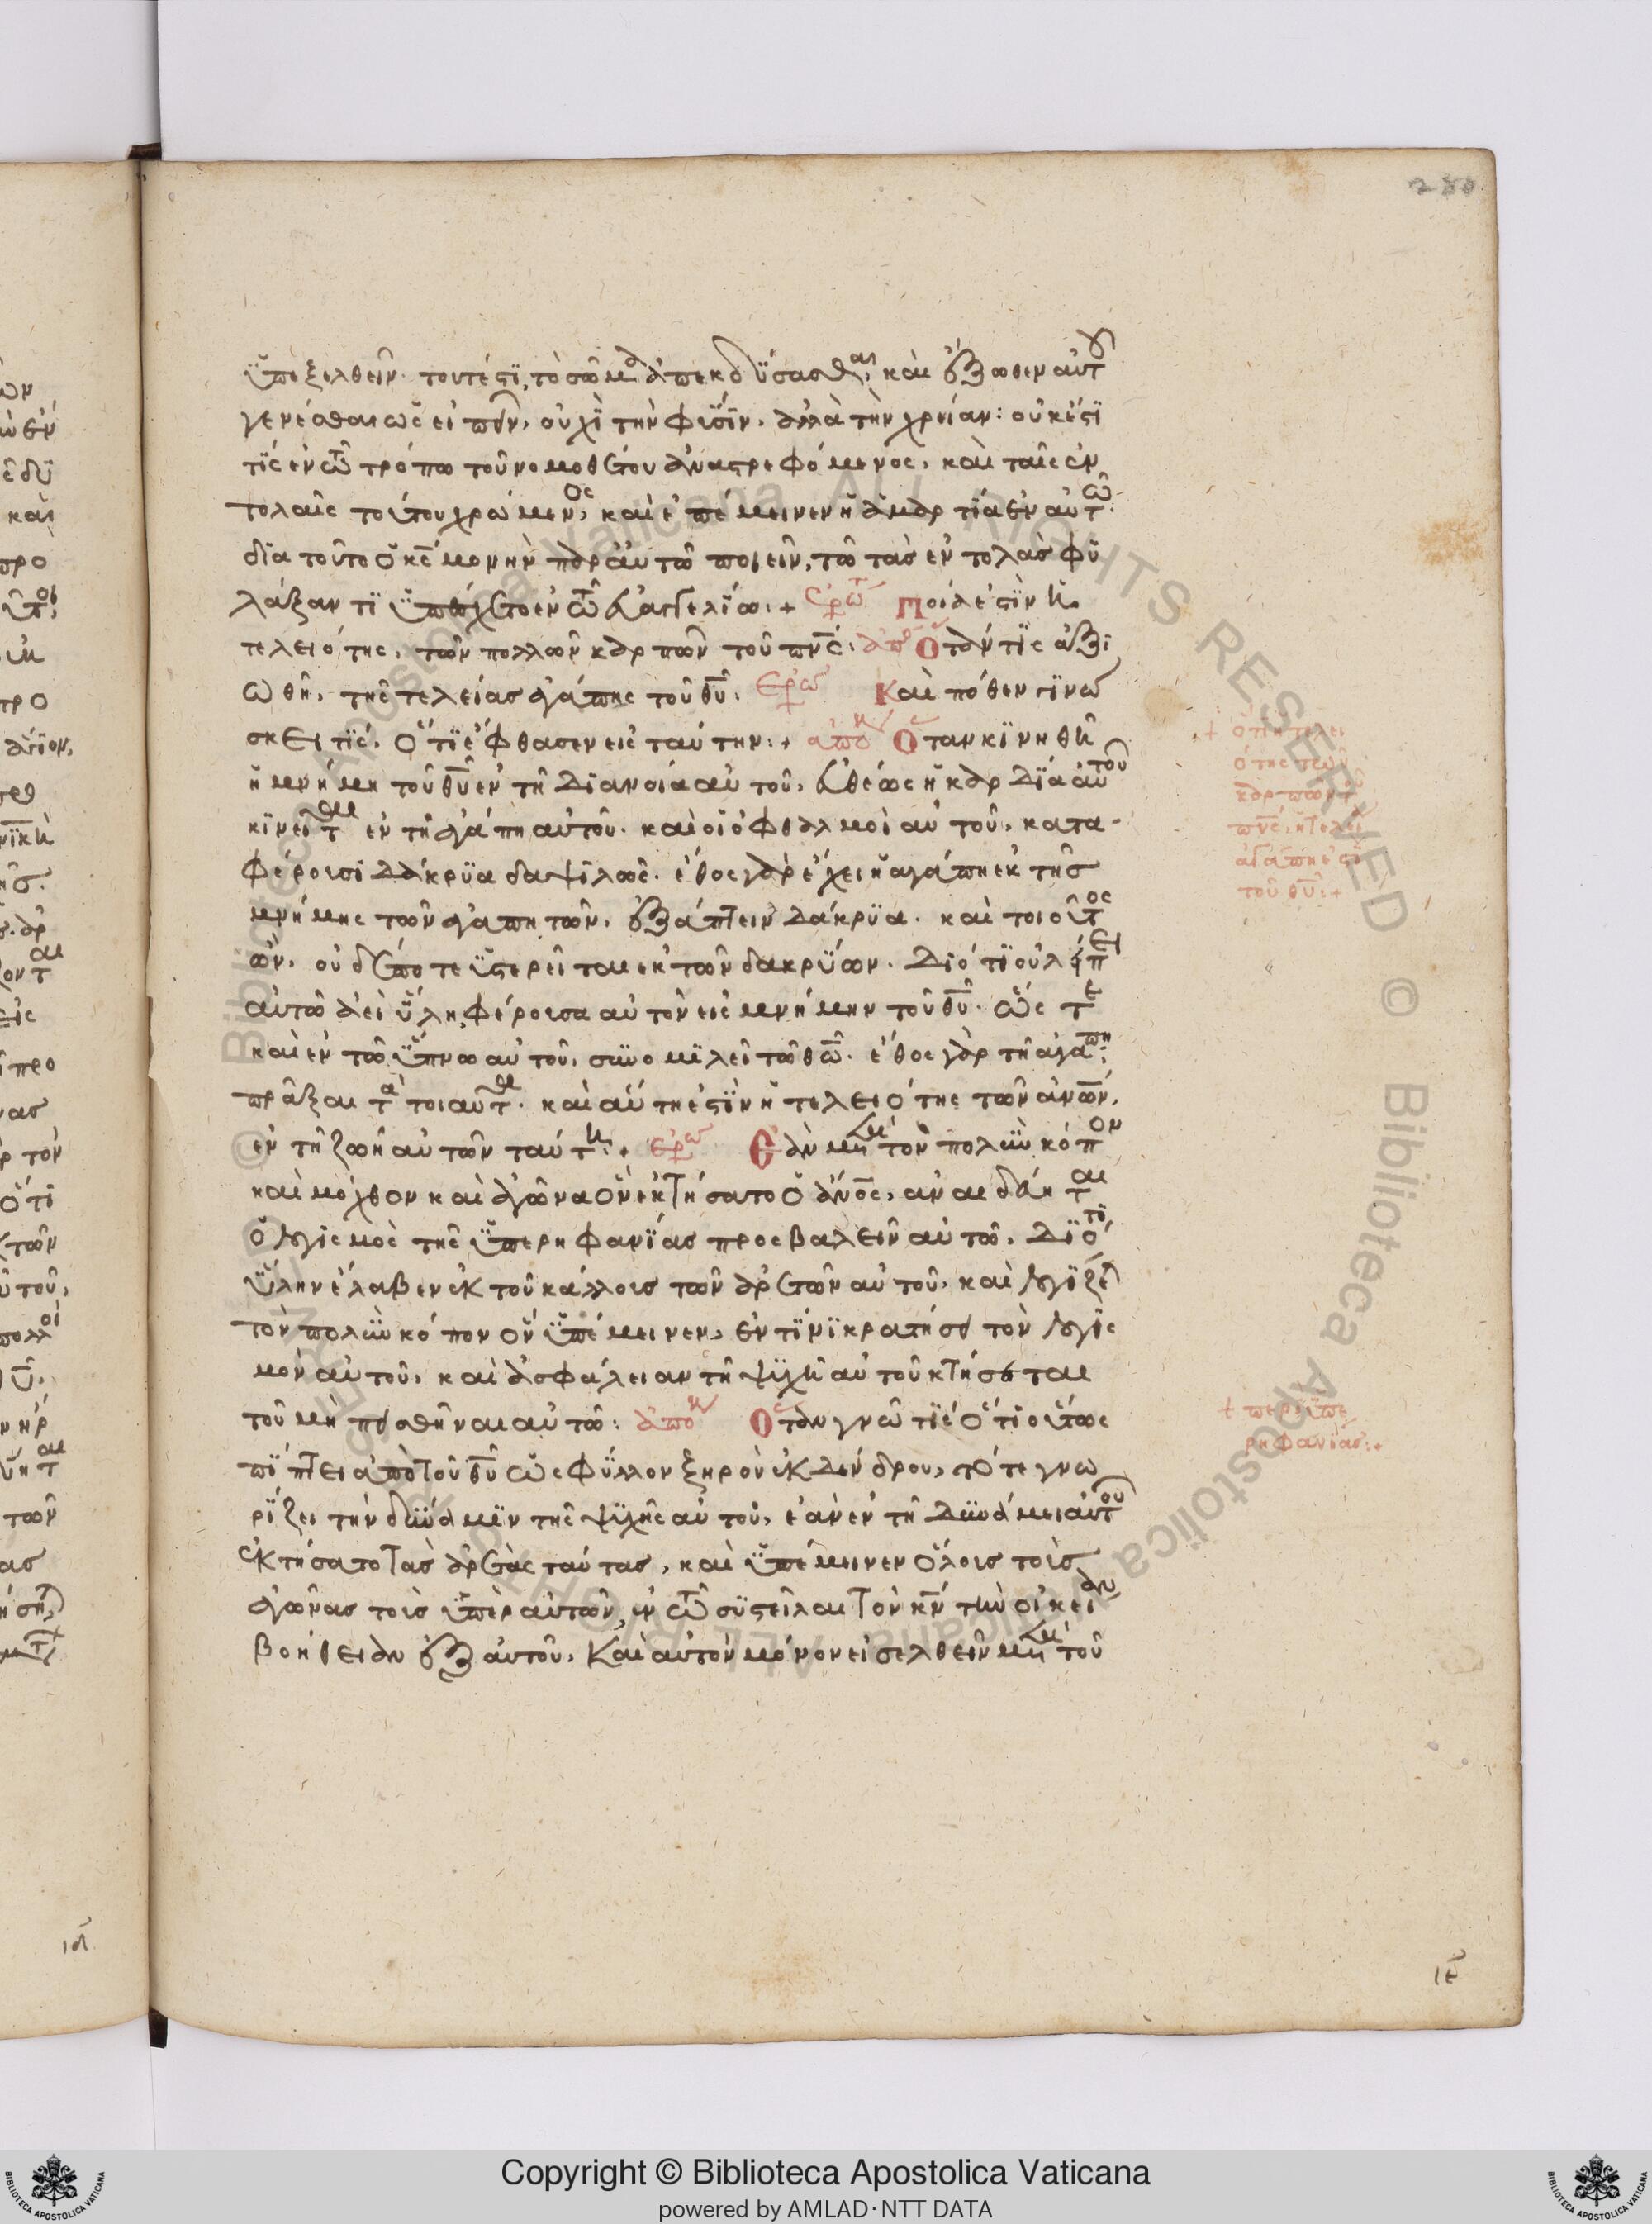 280
ὑπεξελθεῖν. τουτέστι, τὸ σῶμα ἀπεκδύσασθαι, καὶ ἔξωθεν αὐτοῦ
γενέσθαι ὡς εἰπεῖν, οὐχὶ τὴν φύσιν, ἀλλὰ τὴν χρείαν: οὐκ ἔστι
τίς ἐν τῶ τρόπω τοῦ νομοθέτου ἀναστρεφόμενος, καὶ ταῖς ἐν
τολαῖς τούτου χρώμενος, καὶ ἐπέμεινεν ἡ ἁμαρτία ἐν αὐτῶ.
διατοῦτο οὐκ ἔμονὴν παρ' αὐτῶ ποιεῖν, τῶ τὰς ἐντολὰς φυ
λάξαντι ὑπέσχετο ἐν τῶ εὐαγγελίω:+ ἐρώτ Ποία ἐστὶν ἡ
τελειότης, τῶν πολλῶν καρπῶν τοῦ πνς. ἀπό Ὅταν τίς ἀξι
ωθῆ, τῆς τελείας ἀγάπης τοῦ θυ. ἐρώ Καὶ πόθεν γινώ
σκει τίς, ὅτι ἔφθασεν εἰς ταύτην:+ ἀπόκ Ὅταν κινηθῆ
ἡ μνήμη τοῦ θυ ἐν τῆ διανοία αὐτοῦ, εὐθέως ἡ καρδία αὐτοῦ
κινεῖται ἐν τῆ ἀγάπη αὐτοῦ. καὶ οἱ ὀφθαλμοὶ αὐτοῦ, κατα-
φέρουσι δάκρυα δαψιλῶς. ἔθος γὰρ ἔχει ἡ ἀγάπη ἐκ τῆς
μνήμης τῶν ἀγαπητῶν, ἐξάπτειν δάκρυα. καὶ τοιοῦτος
ὢν, οὐδέποτε ὑστερεῖται ἐκ τῶν δακρύων. διότι οὐ λείπει
αὐτῶ ἀεὶ ὕλη, φέρουσα αὐτὸν εἰς μνήμην τοῦ θυ. ὥστε
καὶ ἐν τῶ ὕπνω αὐτοῦ, συνομιλεῖ τῶ θω. ἔθος γὰρ τῆ ἀγάπη:
πρᾶξαι τὰ τοιαῦτα. καὶ αὕτη ἐστὶν ἡ τελειότης τῶν ἀνων,
ἐν τῆ ζωῆ αὐτῶν ταύτη:+ ἐρώ Ἐὰν μετὰ τὸν πολὺν κόπον
καὶ μόχθον καὶ ἀγῶνα ὃν ἐκτήσατο ὁ ἀνος, ἀναιδεύηται
ὁ λογισμὸς τῆς ὑπερηφανίας προσβαλεῖν αὐτῶ, διότι
ὕλην ἔλαβεν ἐκ τοῦ κάλλους τῶν ἀρετῶν αὐτοῦ, καὶ λογίζεται
τὸν πολὺν κόπον ὃν ὑπέμεινεν, ἐν τίνι κρατήσει τὸν λογισ
μὸν αὐτοῦ, καὶ ἀσφάλειαν τῆ ψυχῆ αὐτοῦ κτήσεται
τοῦ μὴ πεισθῆναι αὐτῶ: ἀπόκ Ὅταν γνῶ τίς ὅτι οὕτως
πίπτει ἀπὸ τοῦ θυ ὡς φύλλον ξηρὸν ἐκ δένδρου, τότε γνω
ρίζει τὴν δύναμιν τῆς ψυχῆς αὐτοῦ, ἐὰν ἐν τῆ δυνάμει αὐτοῦ
ἐκτήσατο τὰς ἀρετὰς ταύτας, καὶ ὑπέμεινεν ὅλους τοὺς
ἀγῶνας τοὺς ὑπὲρ αὐτῶν, ἐν τῶ συστεῖλαι τὸν κν τὴν οἰκείαν
βοήθειαν ἐξ αὐτοῦ, καὶ αὐτὸν μόνον εἰσελθεῖν μετὰ τοῦ
+ ὅτι ἡ τελει
ότης τῶν
καρπῶν τοῦ
πνς, ἡ τελεί
ἀγάπη ἐστὶ
τοῦ θυ:+
+ περὶ ὑπε
ρηφανίας:+
ιε
Copyright © Biblioteca Apostolica Vaticana
powered by AMLAD·NTT DATA